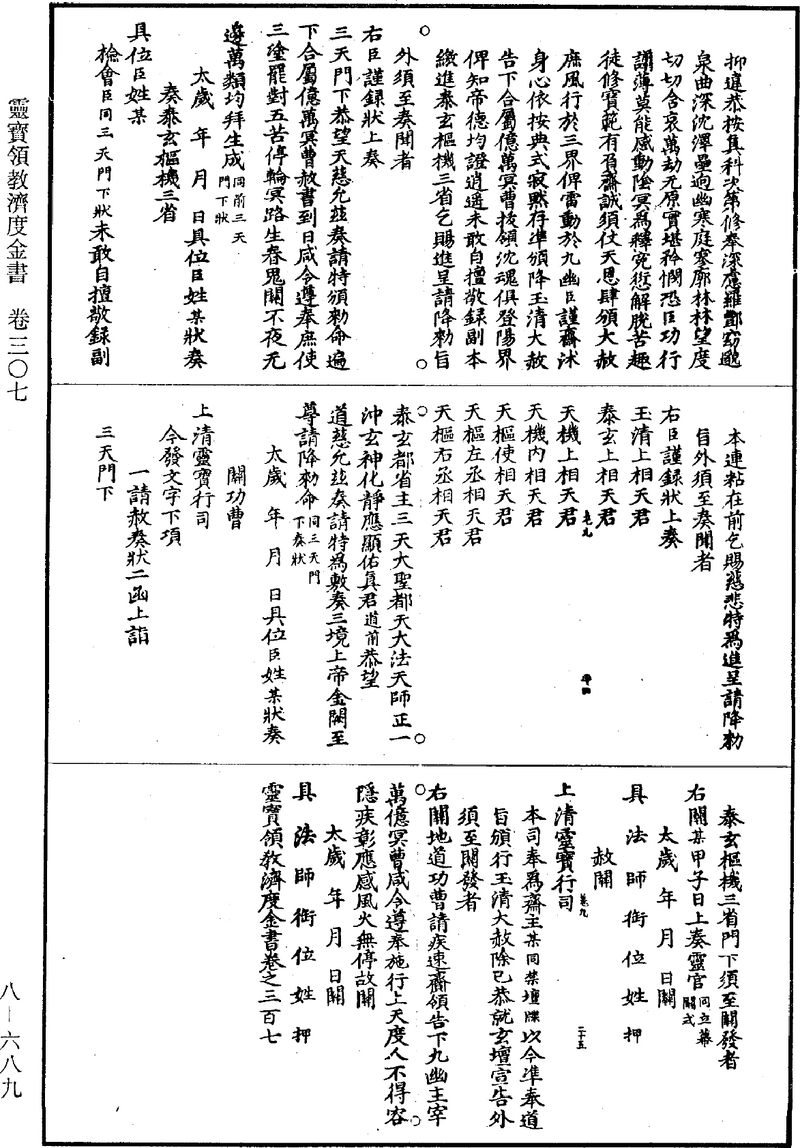 抑違恭按真科次第修奉深慮羅酆窈邈
泉曲深沈澤壘逈幽寒庭寥廓林林望度
切切含哀萬劫无原實堪矜憫恐臣功行
譾薄莫能感動陰冥為釋寃愆解脫苦趣
徒修寶範有孤齋誠須仗天恩肆頒大赦
庶風行於三界俾雷動於九幽臣謹齋沐
身心依按典式寂黙存準頒降玉清大赦
告下合屬億萬冥曹拔領沈魂俱登陽界
俾知帝德均證逍遙未敢自擅敬録副本
繳進泰玄樞機三省乞賜進呈請降勑旨
外須至奏聞者
右臣謹録狀上奏
三天門下恭望天慈允茲奏請特頒勑命遍
下合屬億萬冥曹赦書到日咸令遵奉庶使
三塗罷對五苦停輪冥路生春鬼關不夜无
邊萬類均拜生成同前三天門下狀
太歲 年 月 日具位臣姓某狀奏
奏泰玄樞機三省
具位臣姓某
檢會臣同三天門下狀未敢自擅敬録副
本連粘在前乞賜慈悲特為進呈請降勑
旨外須至奏聞者
右臣謹録狀上奏
玉清上相天君
泰玄上相天君
天機上相天君
天機內相天君
天樞使相天君
天樞左丞相天君
天樞右丞相天君
泰玄都省主三天大聖都天大法天師正一
沖玄神化靜應顯佑真君道前恭望
道慈允茲奏請特為敷奏三境上帝金闕至
尊請降勑命同三天門下奏狀
太歲 年 月 日具位臣姓某狀奏
關功曹
上清靈寶行司
今發文字下項
一請赦奏狀二函上詣
三天門下
泰玄樞機三省門下須至關發者
右關某甲子日上奏靈官同立幕關式
太歲 年 月 日關
具法師銜位姓 押
赦關
上清靈寶行司
卷九
二十五
本司奉為齋主某同禁壇牒以今準奉道
旨頒行玉清大赦除已恭就玄壇宣告外
須至關發者
右關地道功曹請疾速齎領告下九幽主宰
萬億冥曹咸令遵奉施行上天度人不得容
隱疾彰應感風火無停故關
太歲 年 月 日關
具法師銜位姓 押
靈寶領教濟度金書卷之三百七
靈寶領教濟度金書 卷三〇七
八—六八九